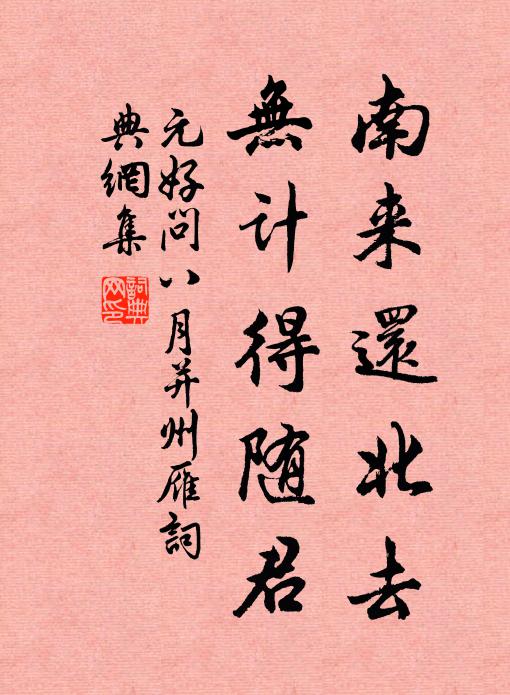 南来還北去
無计得随君
元好问八月并州雁詞
典網集
詞典
网印